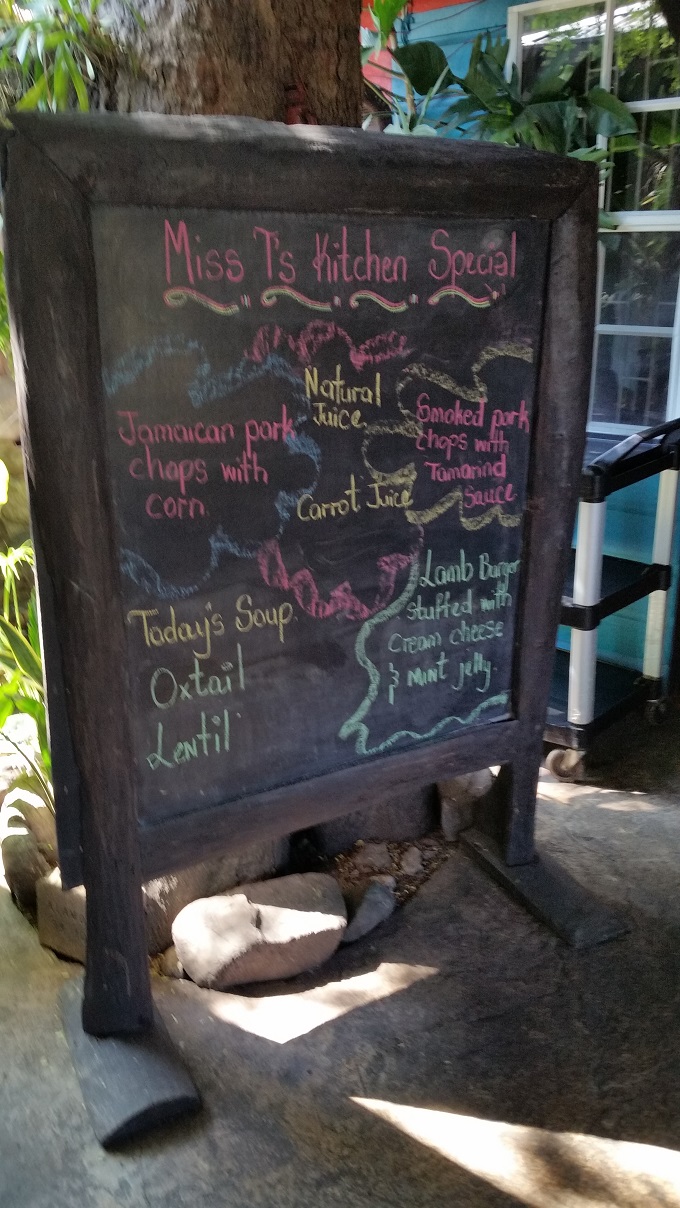 Miss T's Kitchen Special
Jamaican pork
chops with
corn.
Natural
Juice
Carrot Juice
Smoked pork
chops with
Tamarind
Sauce
Today's Soup.
Oxtail
Lentil
Lamb Burger
stuffed with
cream cheese
& mint jelly.